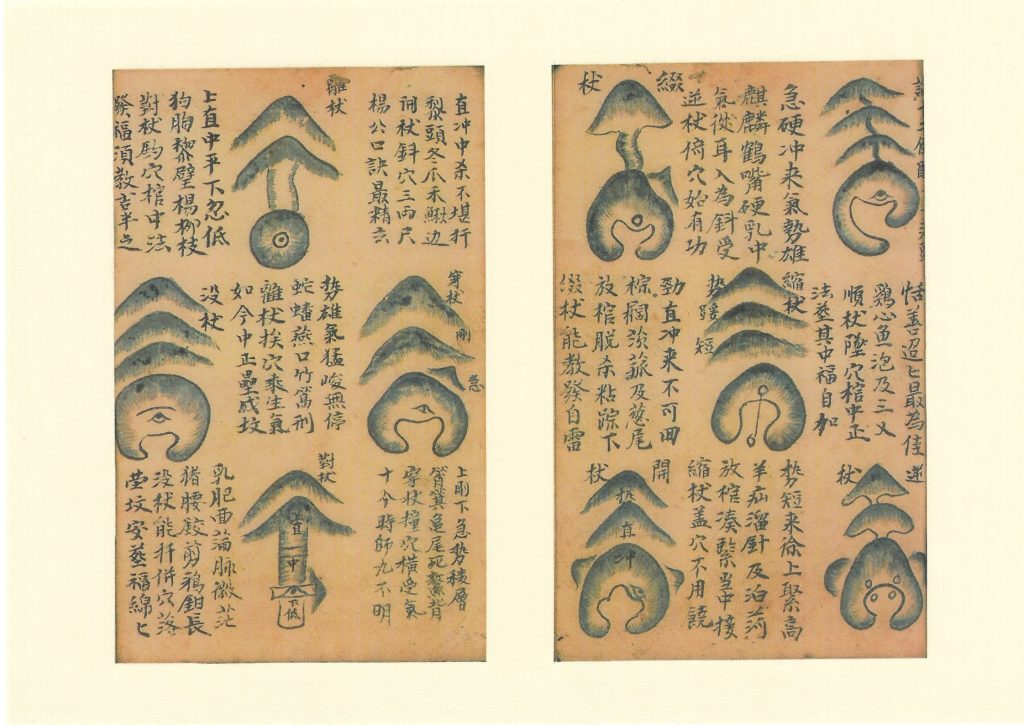 急硬冲来氣勢雄
麒麟鶴嘴硬乳中
氣從耳入為斜受
逆杖倚穴始有功
綴杖
恬善迢匕最為佳
鷄心魚泡及三乂
順杖墜穴棺中正
法葬其中福自加
縮杖
势短
勁直冲来不可回
棕櫚及葱尾
放棺脱杀粘踪下
綴杖能教發自雷
逆杖
势短来徐上聚高
羊疝溜針及泊荷
放棺凑緊当中接
縮杖盖穴不用饒
開杖
势直冲
直冲中杀不堪扦
犁頭冬瓜禾鰍边
開杖斜穴三兩尺
楊公口訣最精玄
離杖
上直中平下忽低
狗胸黎壁楊柳枝
對杖穴棺中法
發福須教
穿杖
剛
急
势雄氣猛峻無停
蛇蟠燕口竹篙刑
離杖挨穴乘生氣
如今中正壘成坟
没杖
上剛下急势棱層
筲箕龜尾死鰲背
穿杖撞穴横受氣
十今時師九不明
對杖
上直
中
下低
乳肥面蒲脉微茫
猪腰鉸剪鴉鉗長
没杖能扦併穴落
坟安葬福綿匕